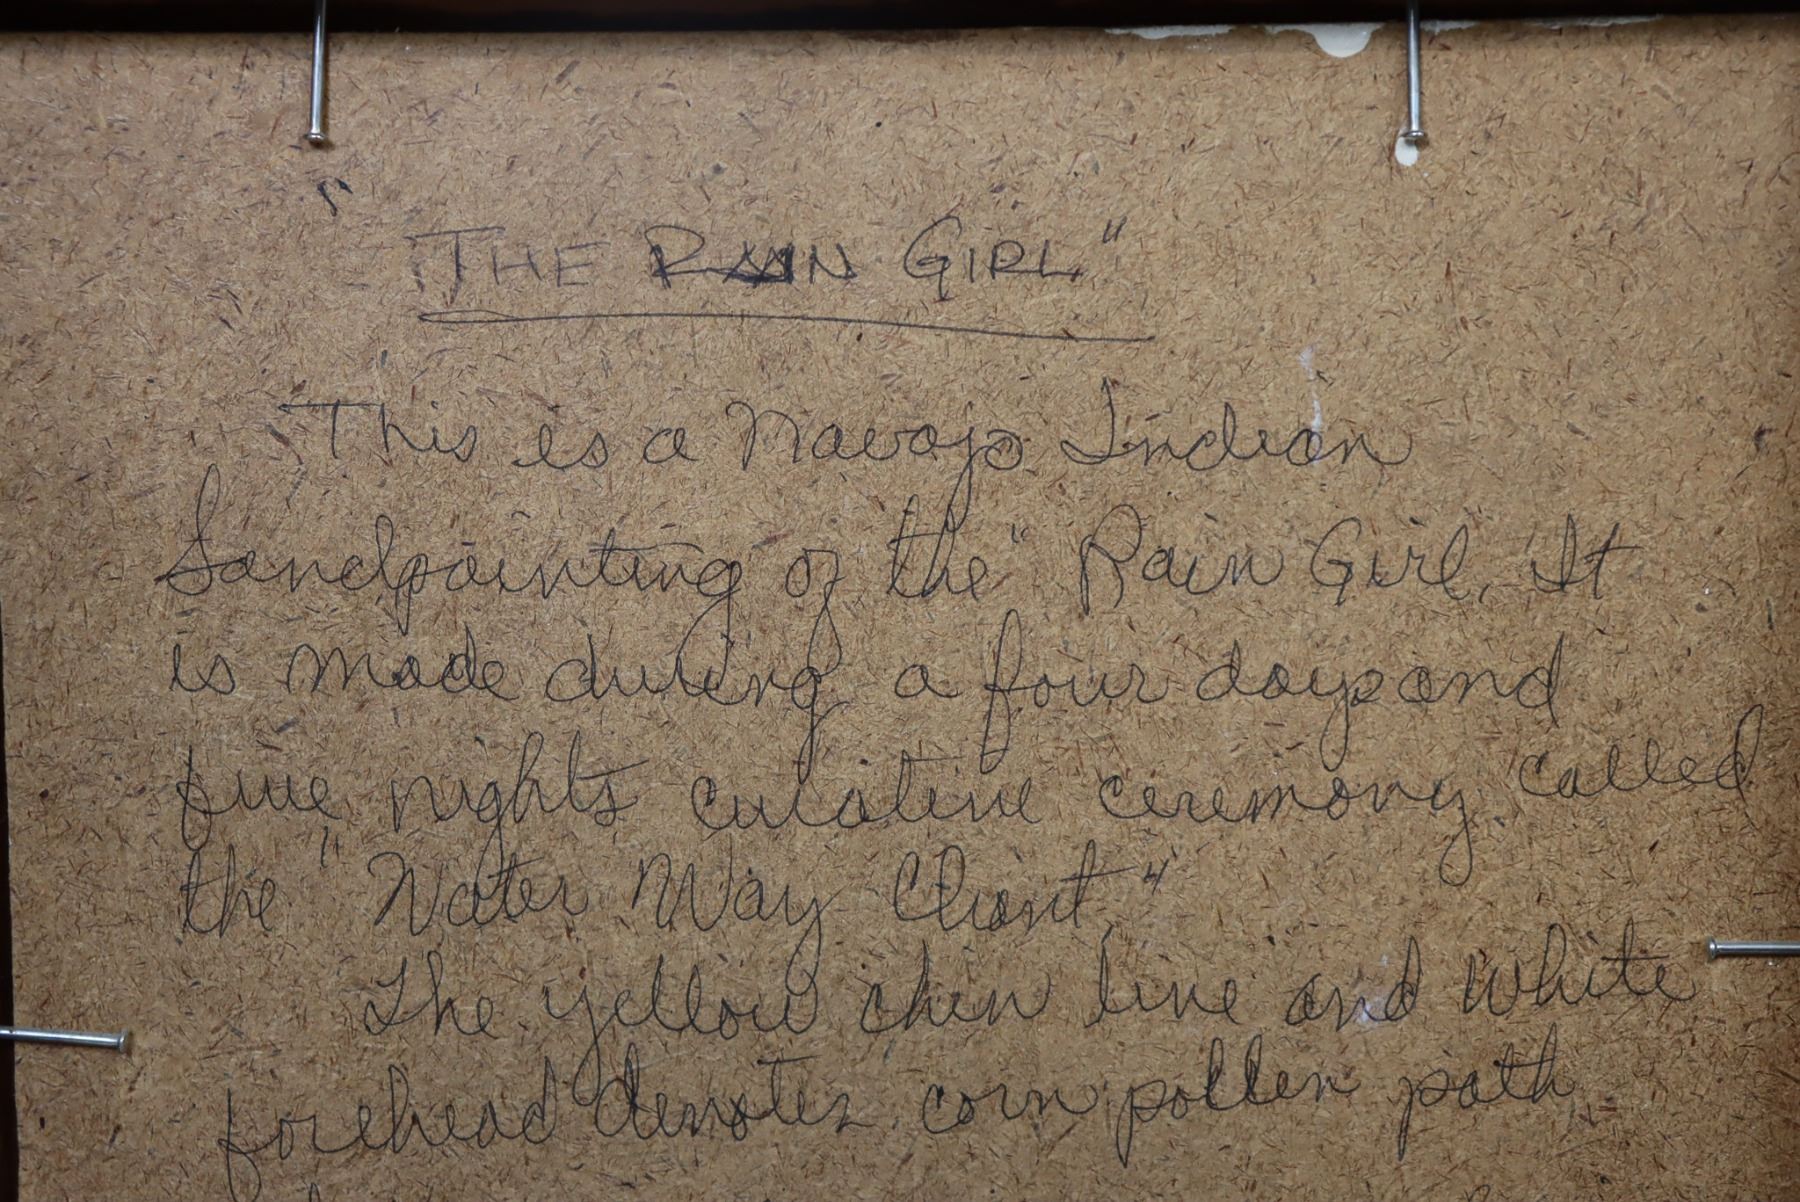 "THE RAIN GIRL"
This is a Navajo Indian
Sandpainting of the "Rain Girl. It
is made during a four days and
five nights curative ceremony called
the "Water Way Chant."
The yellow chin line and white
forehead denotes corn pollen path